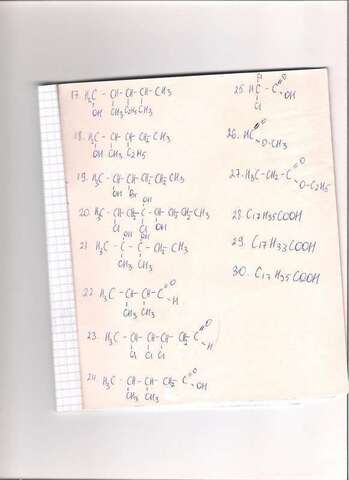 17. H₂C - CH - CH - CH - CH₃
OH CH₃ C₂H₅ CH₃
18. H₂C - CH - CH - CH₂ - CH₃
OH CH₃ C₂H₅
19. H₃C - CH - CH - CH₂ - CH₂ - CH₃
OH Br
20. H₃C - CH - CH₂ - C - CH - CH₂ - CH₂ - CH₃
OH
Cl Cl OH
OH OH
21. H₃C - C - C - CH₂ - CH₃
CH₃ CH₃
22. H₃C - CH - CH - C
O
H
CH₃ CH₃
23. H₃C - CH - CH - CH - CH₂ - C
O
H
Cl Cl Cl
24. H₃C - CH - CH - CH₂ - C
O
OH
CH₃ CH₃
25. HC - C
Cl
O
OH
Cl
26. HC
O
O - CH₃
27. H₃C - CH₂ - C
O
O - C₂H₅
28. C₁₇H₃₅COOH
29. C₁₇H₃₃COOH
30. C₁₇H₃₅COOH